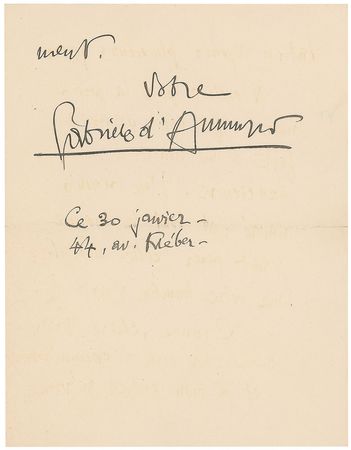 ment.
Votre
Gabriele d'Annunzio
Ce 30 janvier -
44, av. Kléber -